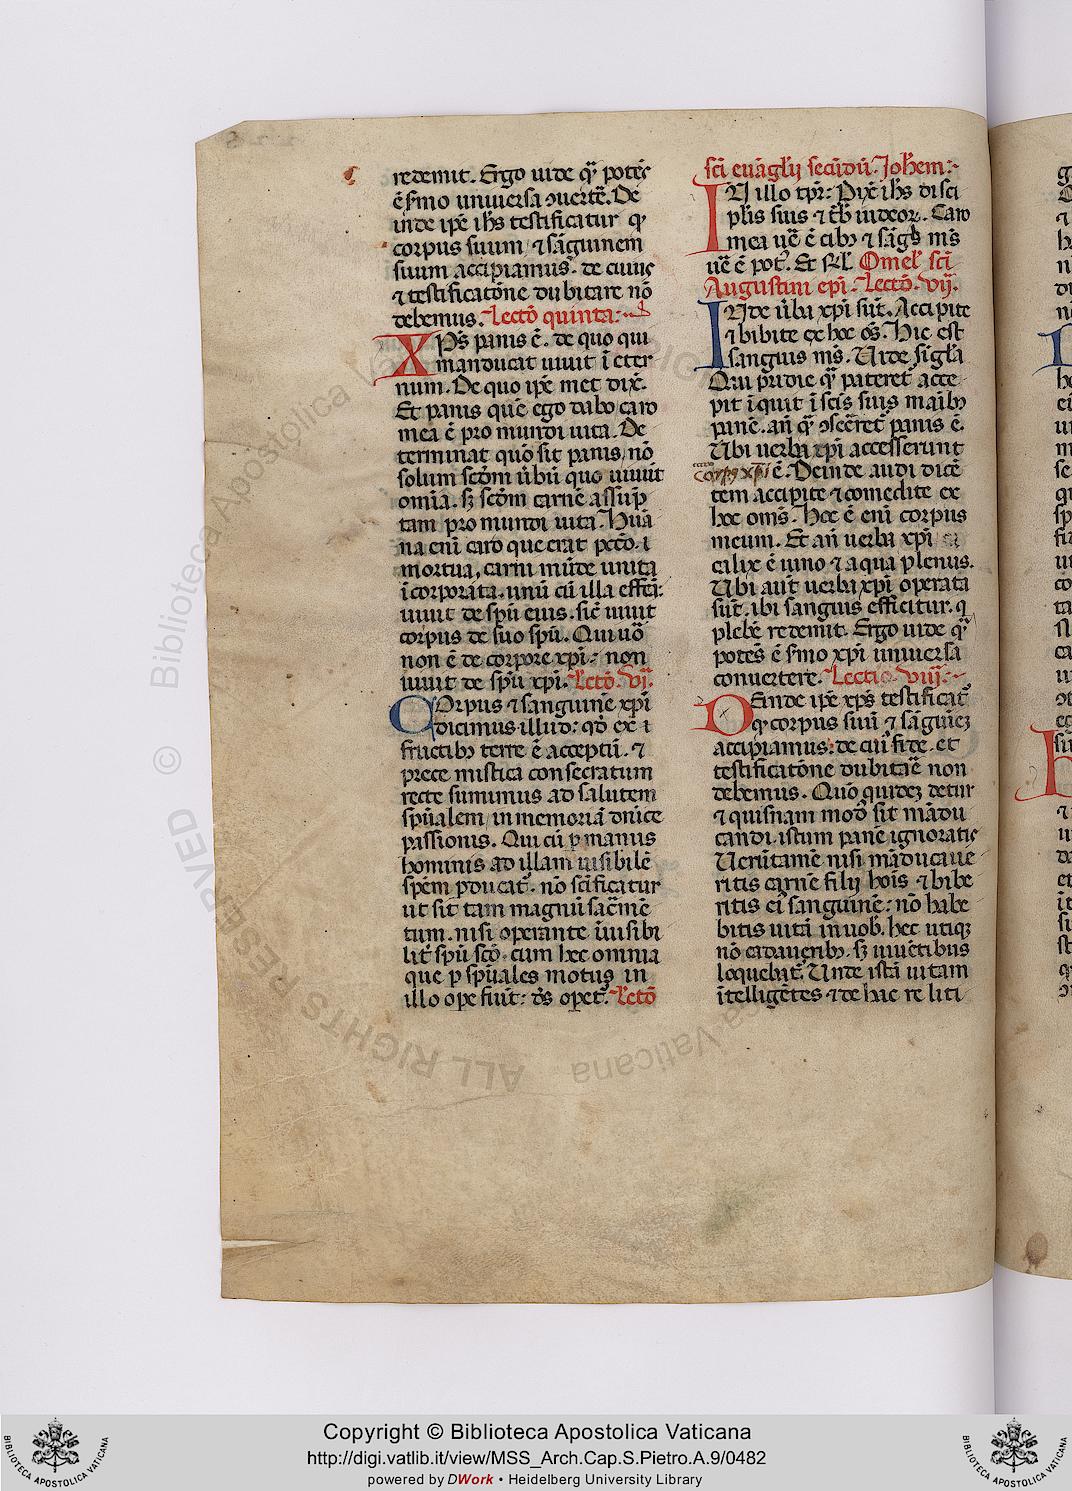 redemit. Ergo uide qͣ potēs
ē s̄mo uniuersa ɔuertē. De
inde ip̄e ih̄s testificatur qͥ
corpus suum ⁊ sāguinem
suum accipiamus. de cuius
⁊ testificatōne dubitare nō
debemus. Lectō quinta:
XP̄s panis ē. de quo qui
manducat uiuit ī eter
num. De quo ip̄e met dix̄.
Et panis quē ego dabo caro
mea ē pro mundi uita. De
terminat quō sit panis, nō
solum scd̄m ūbū quo uiuūt
omīa. sꝫ scd̄m carnē assūp̄
tam pro mundi uita. Hūa
na enī caro que erat pctō.
mortua, carni mūde unita
īcorporata. unū cū illa effc̄ī.
uiuit de spū eius. sic̄ uiuit
corpus de suo spū. Qui uō
non ē de corpore xp̄i: non
uiuit de spū xp̄i. Lectō. vj.
COrpus ⁊ sanguinē xp̄i
dicimus illud: qd̄ ex
fructibꝫ terre ē acceptū. ⁊
prece mistica consecratum
recte sumimus ad salutem
spūalem in memoriā dnīce
passionis. Qui cū ꝑ manus
hominis ad illam uisibilē
spēm ꝑducat. nō scīficatur
ut sit tam magnū sac̄mē
tum. nisi operante īuisibi
lit̄ spū scō. cum hec omnia
que ꝑ spūales motus in
illo ope fiūt: dš opet̄. Lectō
sci euāglij secūdū. Johem:
IN illo tpr̄: Dix̄ ih̄s disci
plīs suis ⁊ tb̄ iudeoꝝ. Caro
mea ūe ē cibꝫ ⁊ sāgs mš
ūe ē pot. Et Rl. Omel sci
Augustini epī. Lectō. vij.
INde ūba xp̄i sūt. Accipite
⁊ bibite ex hoc oš. Hic est
sanguis mš. Uide sīgla
Qui pridie qͣ pateret acce
pit īquit ī scīs suis maībꝫ
panē. an̄ qͣ ɔsecret̄ panis ē.
Ubi uerba xp̄i accesserunt
corpꝰ xp̄i ē. Deinde audi dicē
tem accipite ⁊ comedite ex
hoc omš. Hoc ē eni corpus
meum. Et an̄ uerba xp̄i
calix ē uino ⁊ aqua plenus.
Ubi aut̄ uerba xp̄i operata
sūt. ibi sanguis efficitur. q
plebē redemit. Ergo uide qͣ
potēs ē s̄mo xp̄i uniuersa
conuertere. Lectio. viij.
DEinde ip̄e xp̄s testificat̄
qͥ corpus suū ⁊ sāguinēꝫ
accipiamus: de cuī fide. et
testificatōne dubitāe non
debemus. Quō quideꝫ detur
⁊ quisnam modꝰ sit mādu
candi. istum panē ignoratis
Uerūtamē nisi māducaue
ritis carnē filij hoīs ⁊ bibe
ritis eī sanguinē: nō habe
bitis uitā in uob̄. hec utiqꝫ
nō cadaueribꝫ. sꝫ uiuētibus
loquebat̄. Unde istā uitam
ītelligētes ⁊ de hac re liti
Copyright © Biblioteca Apostolica Vaticana
http://digi.vatlib.it/view/MSS_Arch.Cap.S.Pietro.A.9/0482
powered by DWork • Heidelberg University Library
© Biblioteca Apostolica Vaticana
ALL RIGHTS RESERVED
BIBLIOTECA APOSTOLICA VATICANA
BIBLIOTECA APOSTOLICA VATICANA